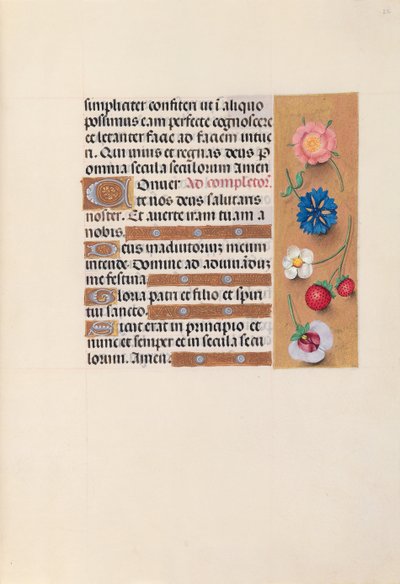 simpliciter confiteri ut i aliquo
possimus eam perfecte cognoscere
et letanter facie ad faciem intue
ri. Qui vivis et regnas deus p
omnia secula seculorum Amen
Conver Ad completor.
te nos deus salutaris
noster. Et averte iram tuam a
nobis.
Deus in adiutorium meum
intende. Domine ad adiuvandum
me festina.
Gloria patri et filio et spiri
tui sancto.
Sicut erat in principio et
nunc et semper et in secula secu
lorum. Amen.